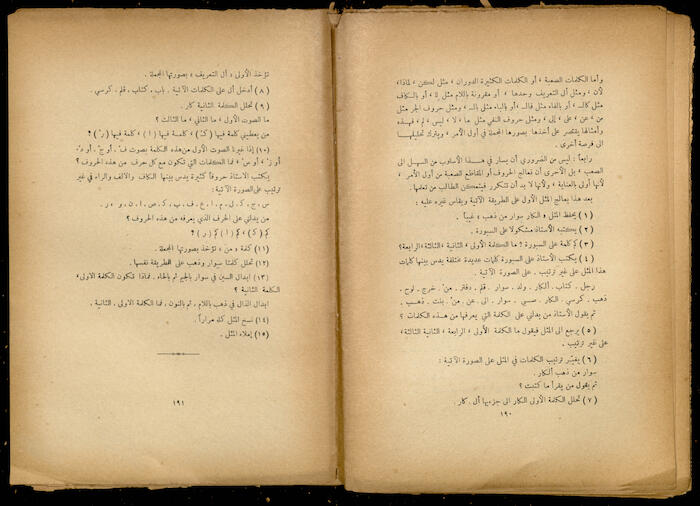 وأما الكلمات الصعبة ، أو الكلمات الكثيرة الدوران ، مثل لكن ، لماذا ،
لأن ، ومثل أل التعريف وحدها ، أو مقرونة باللام مثل للـ ، أو بالكاف
مثل كالـ ، أو بالفاء مثل فالـ ، أو بالباء مثل بالـ ، ومثل حروف الجر مثل
من ، عن ، على ، إلى ، ومثل حروف النفي مثل ما ، لا ، ليس ، لم ، فهذه
وأمثالها يقتصر على أخذها بصورها المجملة في أول الأمر ، ويترك تحليلها
الى فرصة أخرى .
رابعاً : ليس من الضروري أن يسار في هذا الأسلوب من السهل الى
الصعب ، بل الأحرى أن تعالج الحروف أو المقاطع الصعبة من أول الأمر ،
لأنها أولى بالعناية ، ولأنها لا بد أن تتكرر فيتمكن الطالب من تعلمها .
بعد هذا يعالج المثل الأول على الطريقة الآتية ويقاس غيره عليه :
(١) يحفظ المثل « الكار سوار من ذهب » غيباً .
(٢) يكتبه الأستاذ مشكولا على السبورة .
(٣) كم كلمة على السبورة ؟ ما الكلمة الأولى ، الثانية ، الثالثة ، الرابعة ؟
(٤) يكتب الأستاذ على السبورة كلمات عديدة مختلفة يدس بينها كلمات
هذا المثل على غير ترتيب . على الصورة الآتية .
رجل . كتاب . ألكار . ولد . سوار . قلم . دفتر . منْ . خرج . لوح .
ذهب . كرسي . الكار . صبي . سوار . الى . عن . منْ . بنت . ذهب .
ثم يقول الأستاذ من يدلني على الكلمة التي يعرفها من هذه الكلمات ؟
(٥) يرجع الى المثل فيقول ما الكلمة الأولى ، الرابعة ، الثانية ، الثالثة ،
على غير ترتيب .
(٦) يغير ترتيب الكلمات في المثل على الصورة الآتية :
سوار من ذهب ألكار .
ثم يقول من يقرأ ما كتبت ؟
(٧) تحلل الكلمة الأولى الكار الى جزءيها أل . كار .
١٩٠
تؤخذ الأولى « أل التعريف » بصورتها المجملة .
(٨) أدخل أل على الكلمات الآتية . باب . كتاب . قلم . كرسي .
(٩) تحلل الكلمة الثانية كار .
ما الصوت الأول ، ما الثاني ، ما الثالث ؟
من يعطيني كلمة فيها (كـَ) ، كلمة فيها (ا) ، كلمة فيها (رْ) ؟
(١٠) إذا غيرنا الصوت الأول من هذه الكلمة بصوت
أو ز ، أو س ، فما الكلمات التي تتكون مع كل حرف من هذه الحروف ؟
يكتب الاستاذ حروفاً كثيرة يدس بينها الكاف والالف والراء في غير
ترتيب على الصورة الآتية :
س . ج . ك . ل . م . ا . ع . ف . ب . ك . ص . ا . ن . و . ر .
من يدلني على الحرف الذي يعرفه من هذه الحروف ؟
كم (ك) ، كم (ا) كم (ر) ؟
(١١) كلمة « من » تؤخذ بصورتها المجملة .
(١٢) تحلل كلمتا سوار وذهب على الطريقة نفسها .
(١٣) ابدال السين في سوار بالجيم ثم بالحاء . فماذا تكون الكلمة الاولى ،
الكلمة الثانية ؟
ابدال الذال في ذهب باللام . ثم بالنون . فما الكلمة الاولى . الثانية .
(١٤) نسخ المثل كله مراراً .
(١٥) إملاء المثل .
١٩١